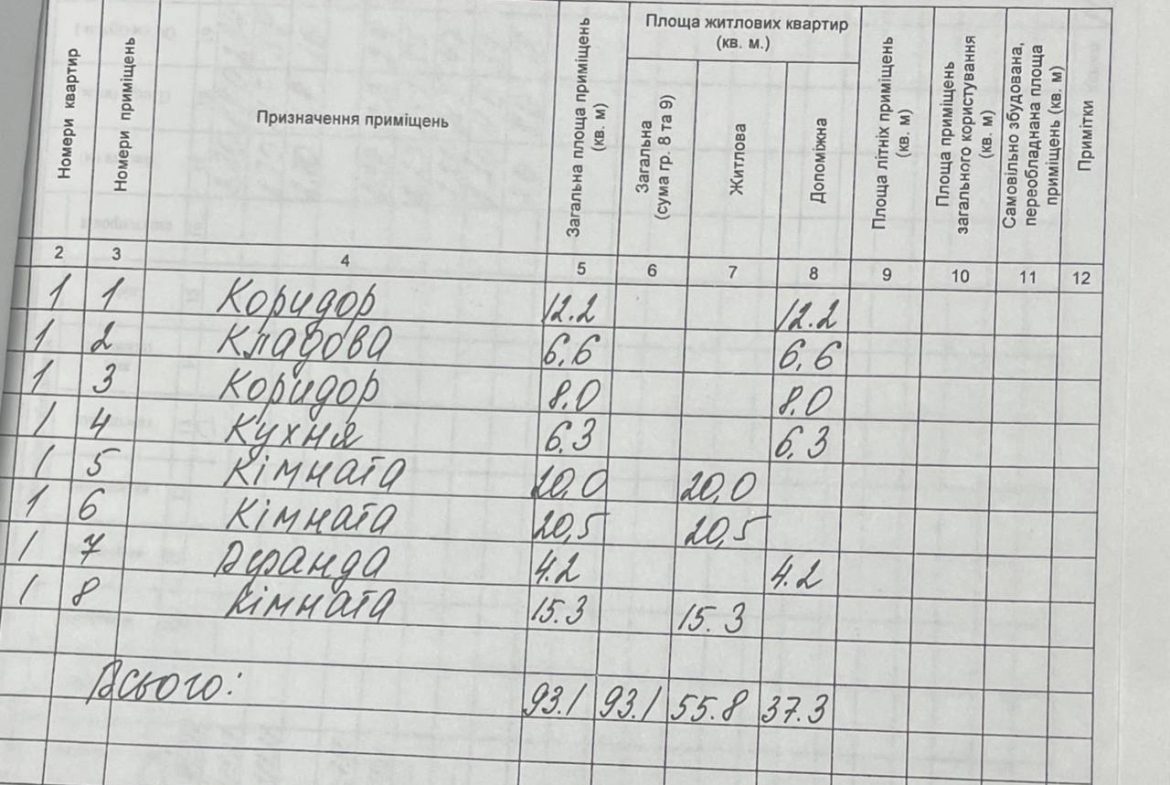 Номери квартир
Номери приміщень
Призначення приміщень
Загальна площа приміщень (кв. м)
Площа житлових квартир (кв. м.)
Загальна (сума гр. 8 та 9)
Житлова
Допоміжна
Площа літніх приміщень (кв. м)
Площа приміщень загального користування (кв. м)
Самовільно збудована, переобладнана площа приміщень (кв. м)
Примітки
2 3 4 5 6 7 8 9 10 11 12
1 1 Коридор 12.2 12.2
1 2 Кладова 6,6 6,6
1 3 Коридор 8.0 8.0
1 4 Кухня 6,3 6,3
1 5 Кімната 20,0 20,0
1 6 Кімната 20,5 20,5
1 7 Веранда 4.2 4.2
1 8 Кімната 15.3 15.3
Всього: 93.1 93.1 55.8 37.3